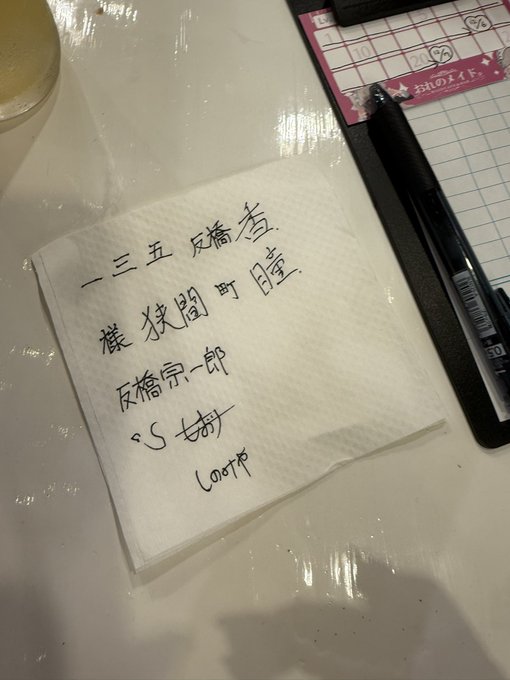 一 三 五 反橋 香
様 狭間 町 瞳
反橋宗一郎
しのみや
おれのメイド。
10
20